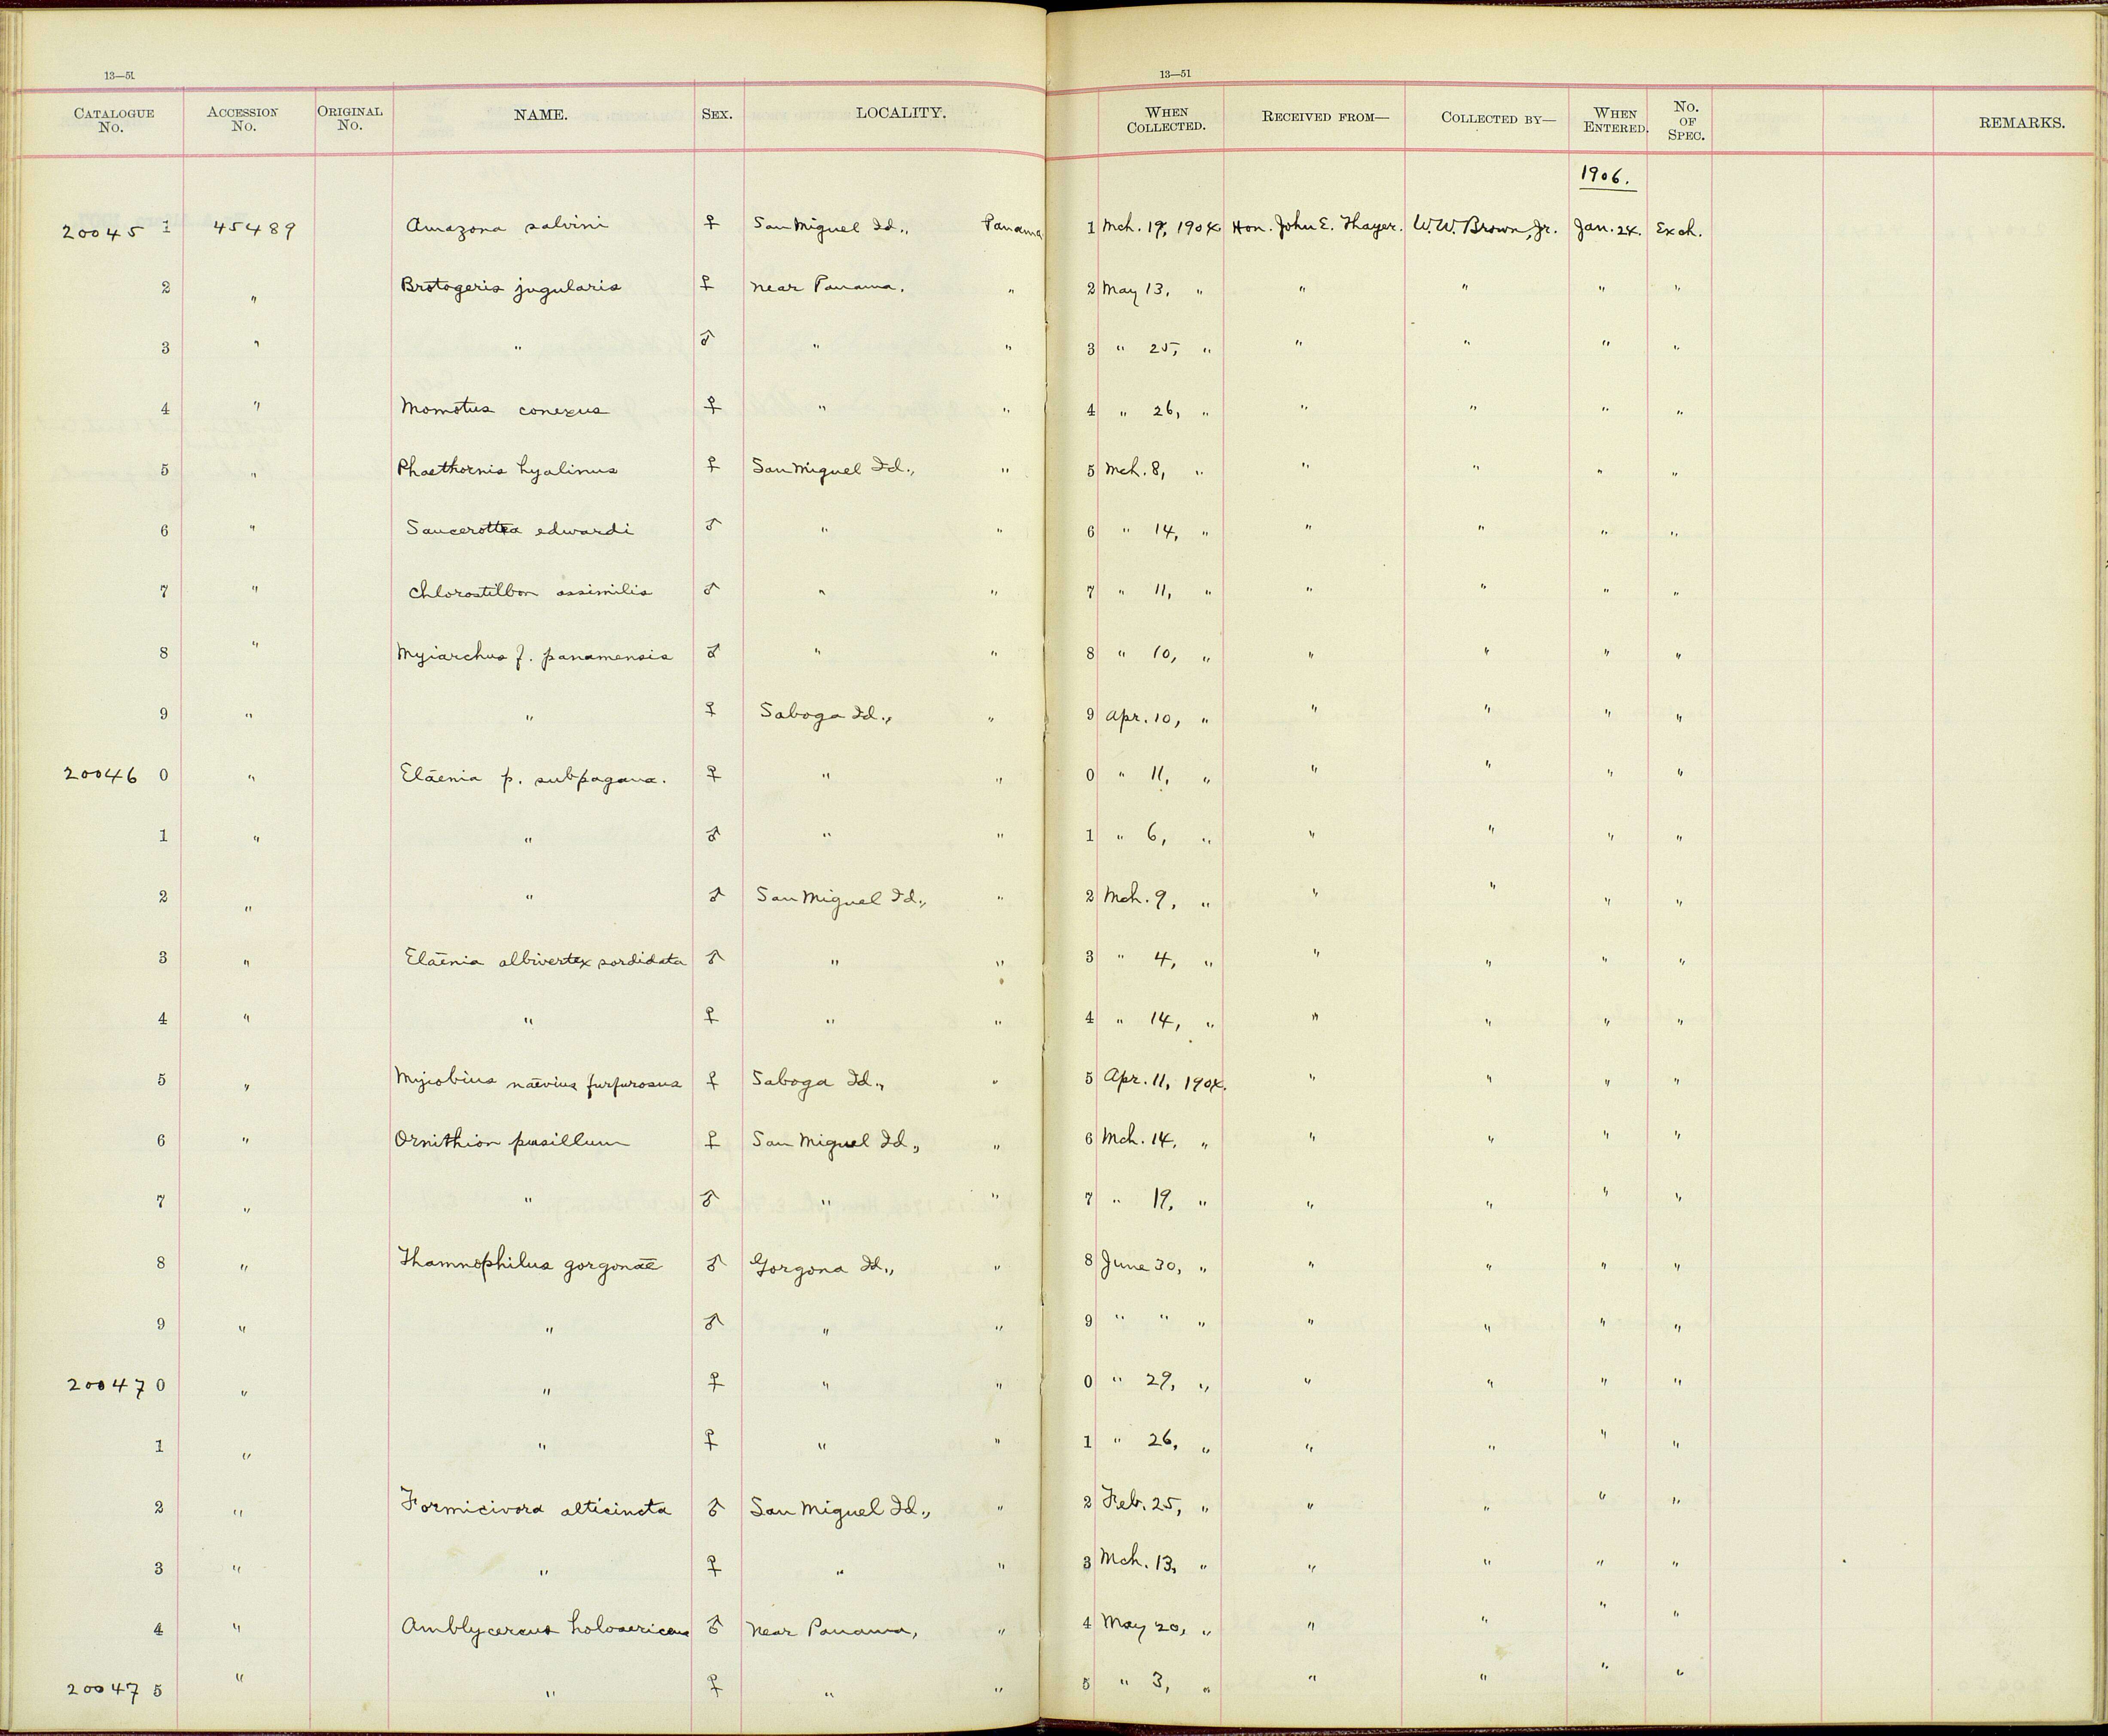 13—51 13—51
CATALOGUE No. ACCESSION No. ORIGINAL No. NAME. SEX. LOCALITY. WHEN COLLECTED. RECEIVED FROM— COLLECTED BY— WHEN ENTERED. No. OF SPEC. REMARKS.
1906.
20045 1 45489 Amazona salvini ♀ San Miguel Id., Panama 1 Mch. 19, 1904 Hon. John E. Thayer. W. W. Brown, Jr. Jan. 24. Exch.
2 " Brotogeris jugularis ♀ Near Panama. " 2 May 13, " " " " "
3 " " ♂ " " 3 " 25, " " " " "
4 " Momotus conexus ♀ " " 4 " 26, " " " " "
5 " Phaethornis hyalinus ♀ San Miguel Id., " 5 Mch. 8, " " " " "
6 " Saucerottea edwardi ♂ " " 6 " 14, " " " " "
7 " Chlorostilbon assimilis ♂ " " 7 " 11, " " " " "
8 " Myiarchus f. panamensis ♂ " " 8 " 10, " " " " "
9 " " ♀ Saboga Id., " 9 Apr. 10, " " " " "
20046 0 " Elaenia p. subpagana. ♀ " " 0 " 11, " " " " "
1 " " ♂ " " 1 " 6, " " " " "
2 " " ♂ San Miguel Id., " 2 Mch. 9, " " " " "
3 " Elaenia albivertex sordidata ♂ " " 3 " 4, " " " " "
4 " " ♀ " " 4 " 14, " " " " "
5 " Myiobius naevius furfurosus ♀ Saboga Id., " 5 Apr. 11, 1904. " " " "
6 " Ornithion pusillum ♀ San Miguel Id., " 6 Mch. 14, " " " " "
7 " " ♂ " " 7 " 19, " " " " "
8 " Thamnophilus gorgonae ♂ Gorgona Id., " 8 June 30, " " " " "
9 " " ♂ " " 9 " " " " " " "
20047 0 " " ♀ " " 0 " 29, " " " " "
1 " " ♀ " " 1 " 26, " " " " "
2 " Formicivora alticincta ♂ San Miguel Id., " 2 Feb. 25, " " " " "
3 " " ♀ " " 3 Mch. 13, " " " " "
4 " Amblycercus holosericeus ♂ Near Panama, " 4 May 20, " " " " "
20047 5 " " ♀ " " 5 " 3, " " " " "